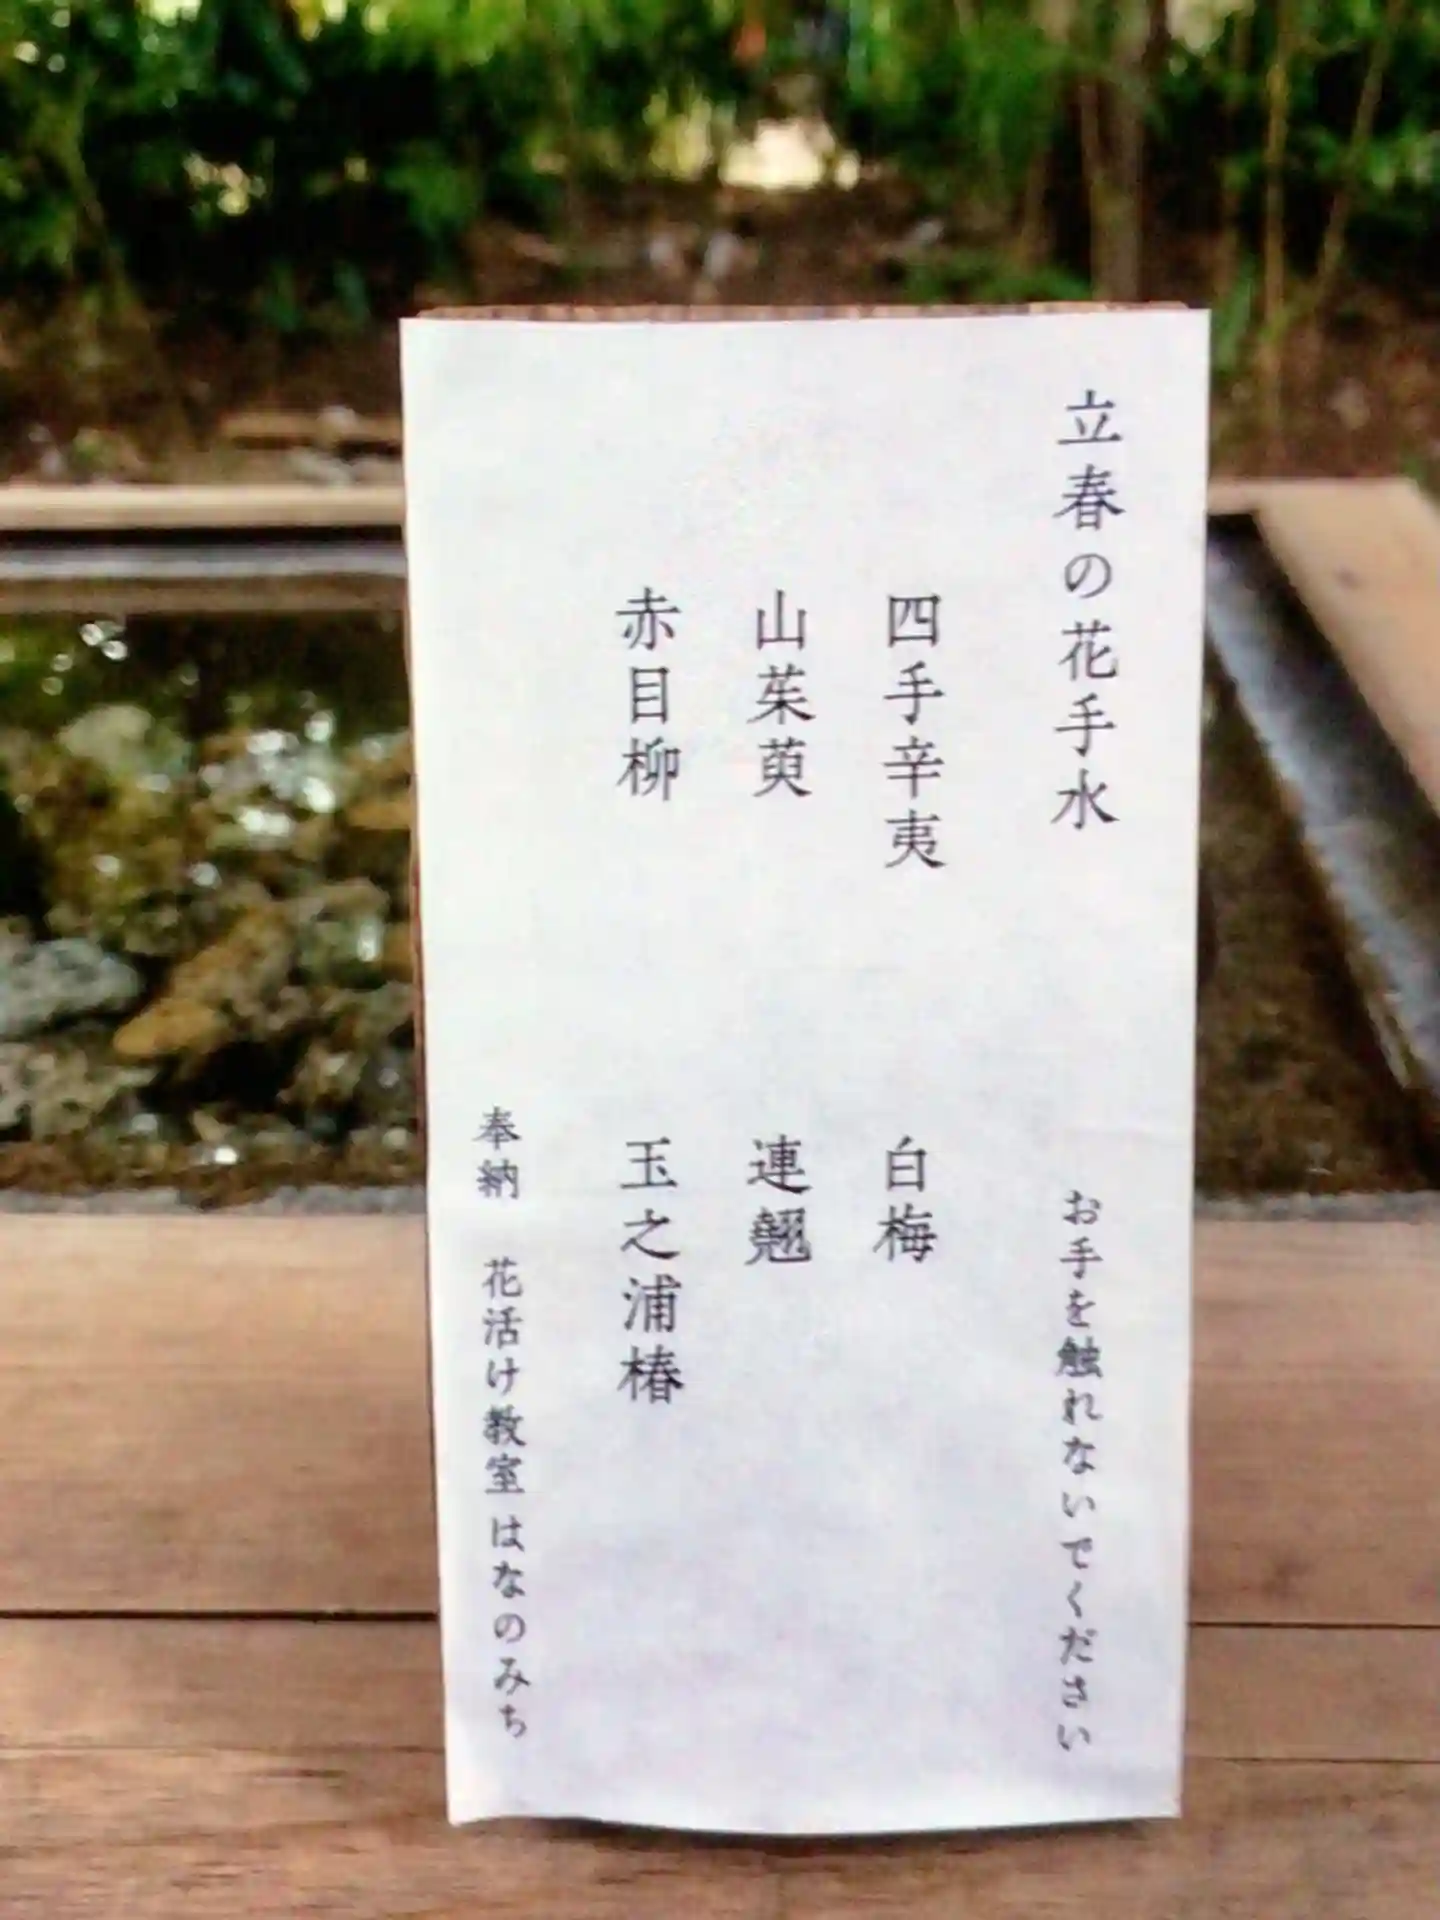 立春の花手水
お手を触れないでください
四手辛夷
白梅
山茱萸
連翹
赤目柳
玉之浦椿
奉納 花活け教室 はなのみち